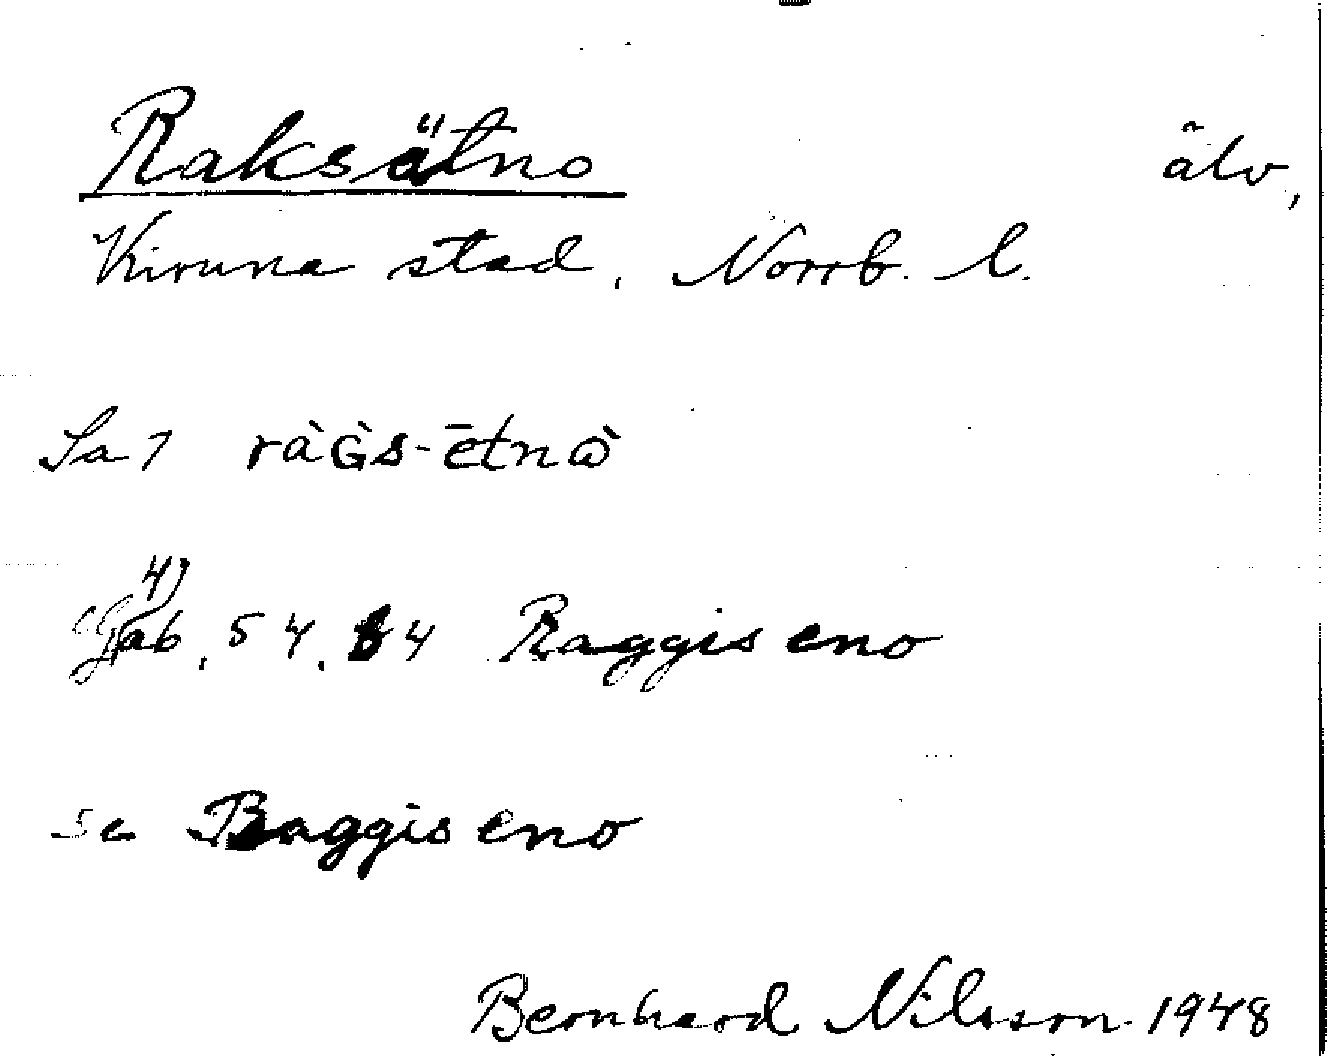 Raksätno älv,
Kiruna stad, Norrb. l.
Sa 1 ràG̀s-ētnὼ
4)
54. 4 Raggis eno
se Baggis eno
Bernhard Nilsson 1948